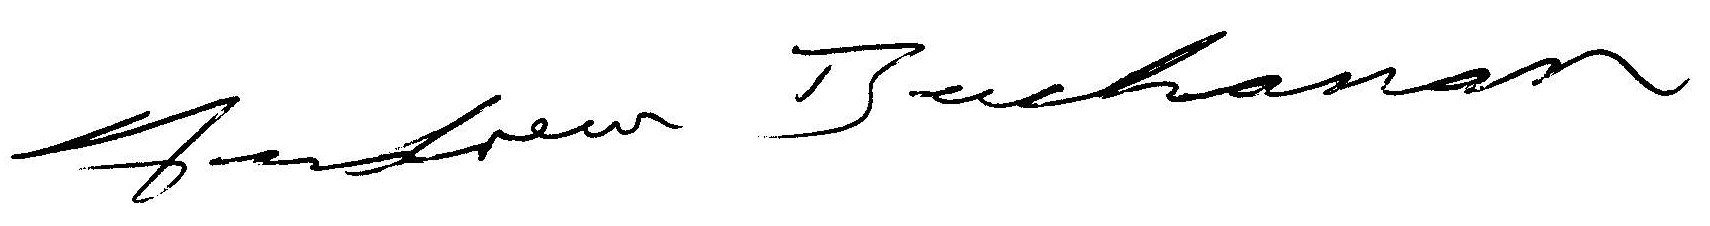 Andrew Buchanan